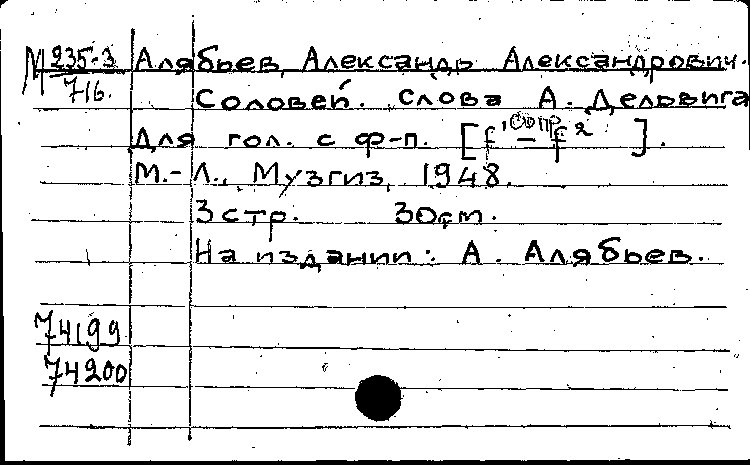 М 235-3 Алябьев, Александр Александрович.
716. Соловей. Слова А. Дельвига
Для гол. с ф-п. [f¹ - f² сопр.].
М.-Л., Музгиз, 1948.
3 стр. 30 см.
На издании: А. Алябьев.
74199
74200